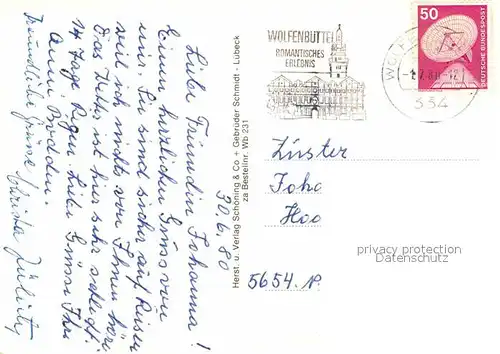 Liebe Freundin Johanna!
Einen herzlichen Gruss von
mir. Sie sind sicher auf Reisen
weil ich nichts von Ihnen höre
Das Wetter ist hier sehr schlecht
14 Tage Regen. Liebe Grüsse Ihre
Anni
freundliche Grüsse Christa
30.6.80
Herst. u. Verlag Schöning & Co + Gebrüder Schmidt - Lübeck
za Bestellnr. Wb 231
WOLFENBÜTTEL
ROMANTISCHES
ERLEBNIS
WOLF
334
50
DEUTSCHE BUNDESPOST
Joha
Hoo
5654
privacy protection
DELCAMPE ANONYM